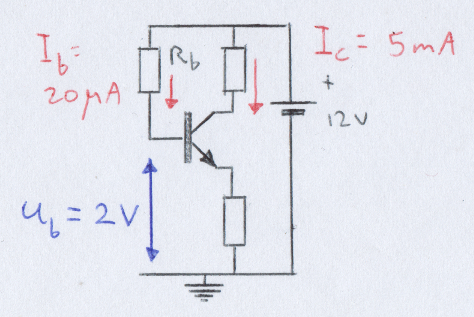 I_b =
20 μA
R_b
I_c = 5 mA
+
12V
u_b = 2V